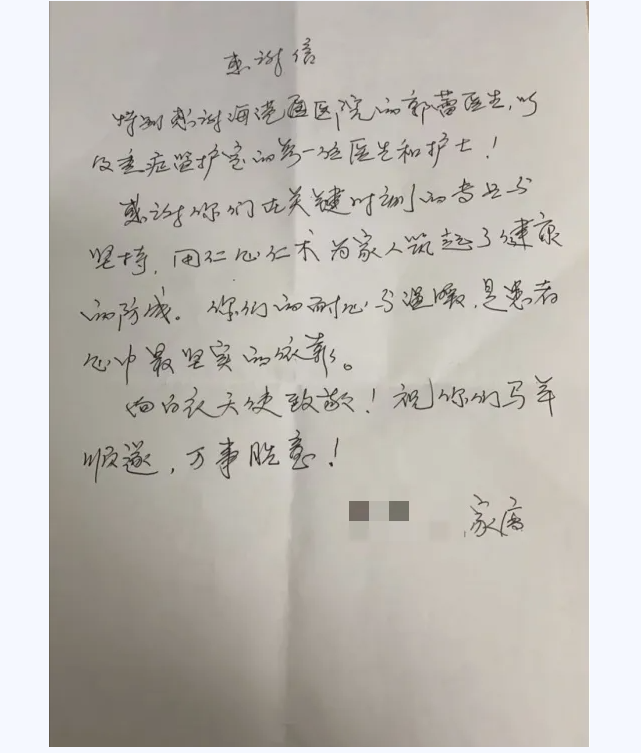 感谢信
特别感谢海港医院的郭蕾医生，以
及重症监护室的每一位医生和护士！
感谢你们在关键时刻的专业与
坚持，用仁心仁术为家人筑起了健康
的防线。你们的耐心与温暖，是患者
心中最坚实的依靠。
向白衣天使致敬！祝你们马年
顺遂，万事胜意！
家属